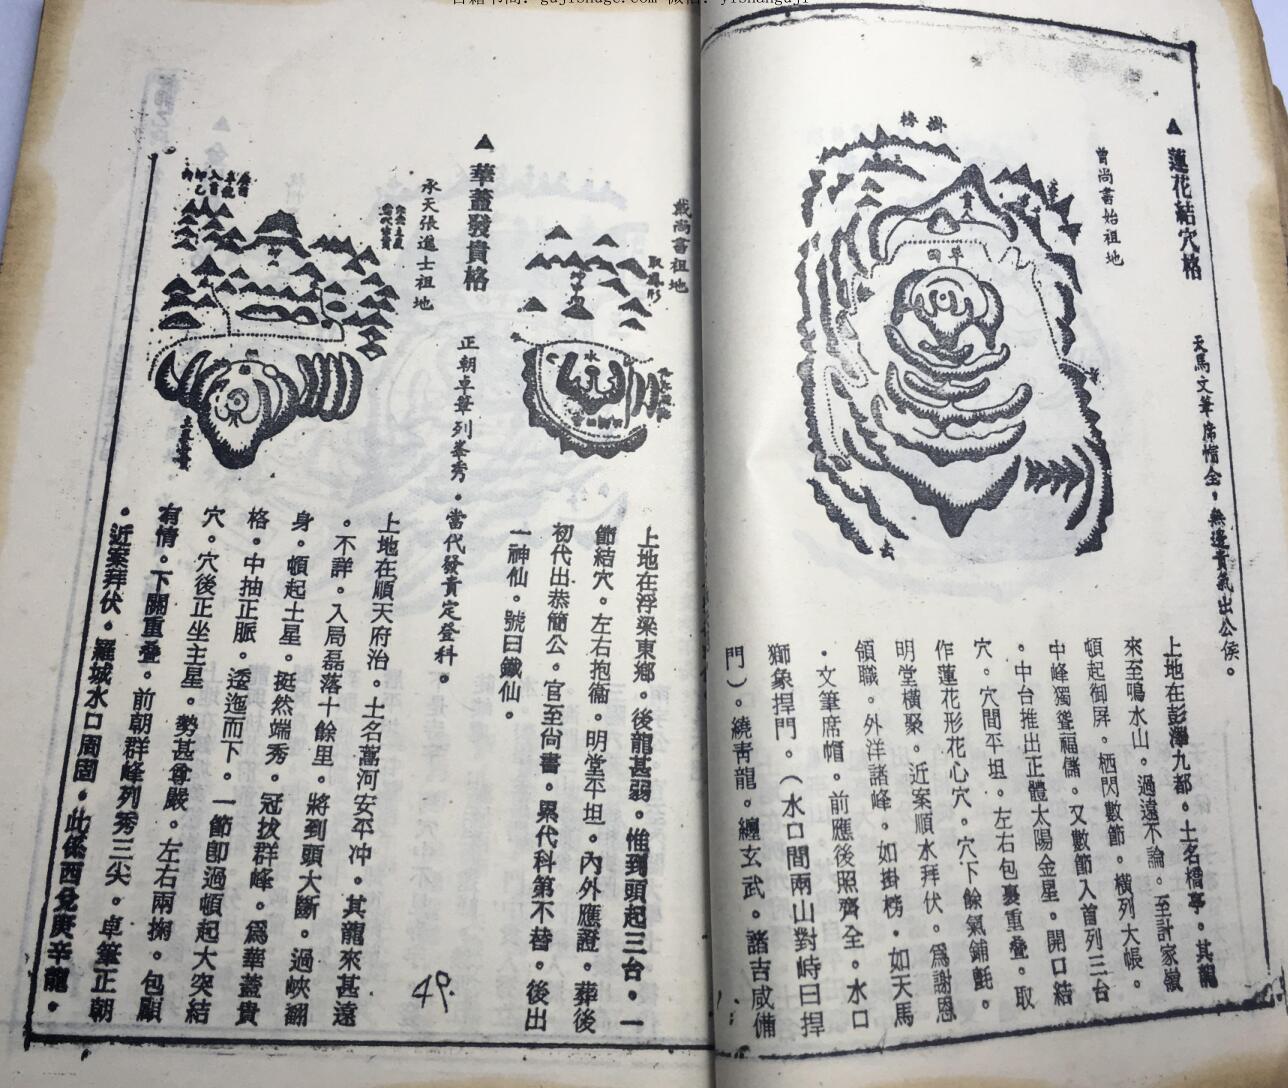 ▲蓮花結穴格
天馬文筆席帽全，無邊貴氣出公侯。
曾尚書始祖地
掛榜
貴人
平田
上地在彭澤九都，土名櫺亭，其龍
來至鳴水山，過遠不論。至計家嶺
頓起御屏，栖閃數節，橫列大帳。
中峰獨聳福儲，又數節入首列三台
。中台推出正體太陽金星，開口結
穴。穴間平坦，左右包裹重疊，取
作蓮花形花心穴，穴下餘氣鋪氈。
明堂橫聚，近案順水拜伏，爲謝恩
領職，外洋諸峰，如掛榜，如天馬
，文筆席帽，前應後照齊全，水口
獅象捍門，（水口間兩山對峙曰捍
門）。繞靑龍，纏玄武，諸吉咸備
戴尚書祖地
水
上地在浮梁東鄉，後龍甚弱，惟到頭起三台，一
節結穴，左右抱衞，明堂平坦，內外應證，葬後
初代出恭簡公，官至尚書，累代科第不替，後出
一神仙，號曰鐵仙。
▲華蓋發貴格
正朝卓筆列峯秀，當代發貴定登科。
承天張進士祖地
上地在順天府治，土名蒿河安平冲，其龍來甚遠
。不詳，入局磊落十餘里，將到頭大斷，過峽翻
身，頓起土星，挺然端秀，冠拔群峰，爲華蓋貴
格，中抽正脈，逶迤而下，一節卽過頓起大突結
穴。穴後正坐主星，勢甚尊嚴，左右兩掬，包顧
有情，下關重疊，前朝群峰列秀三尖，卓筆正朝
，近案拜伏，羅城水口周固，此係酉兌庚辛龍。
49.